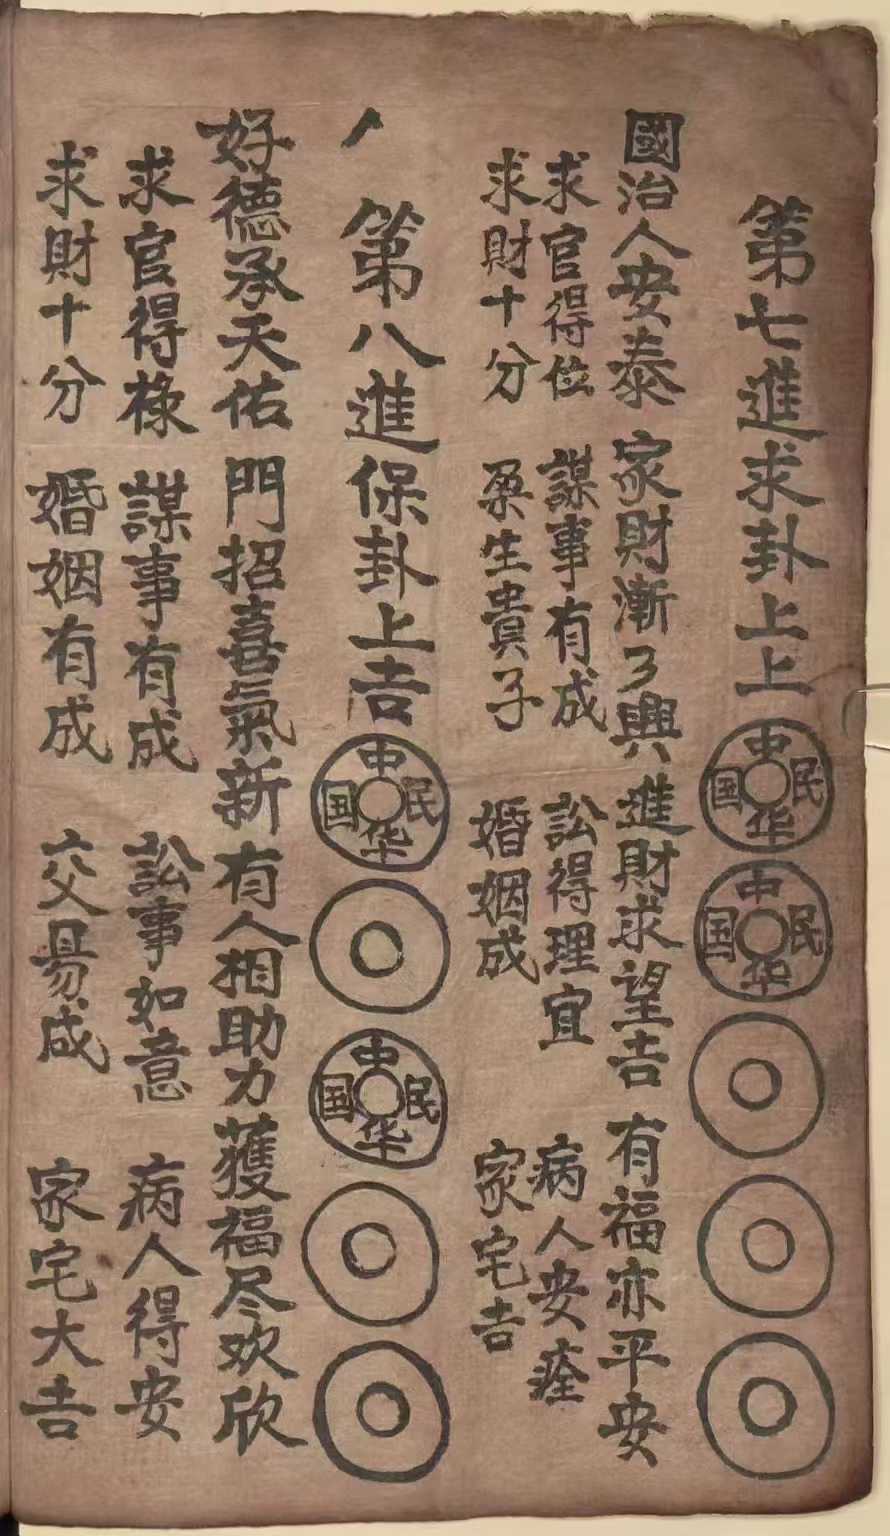 第七進求卦上上 中华民国 中华民国
國治人安泰 家財漸々興 進財求望吉 有福亦平安
求官得位 謀事有成 訟得理宜 病人安痊
求財十分 孕生貴子 婚姻成 家宅吉
第八進保卦上吉 中华民国 中华民国
好德承天佑 門招喜氣新 有人相助力 獲福尽欢欣
求官得禄 謀事有成 訟事如意 病人得安
求財十分 婚姻有成 交易成 家宅大吉